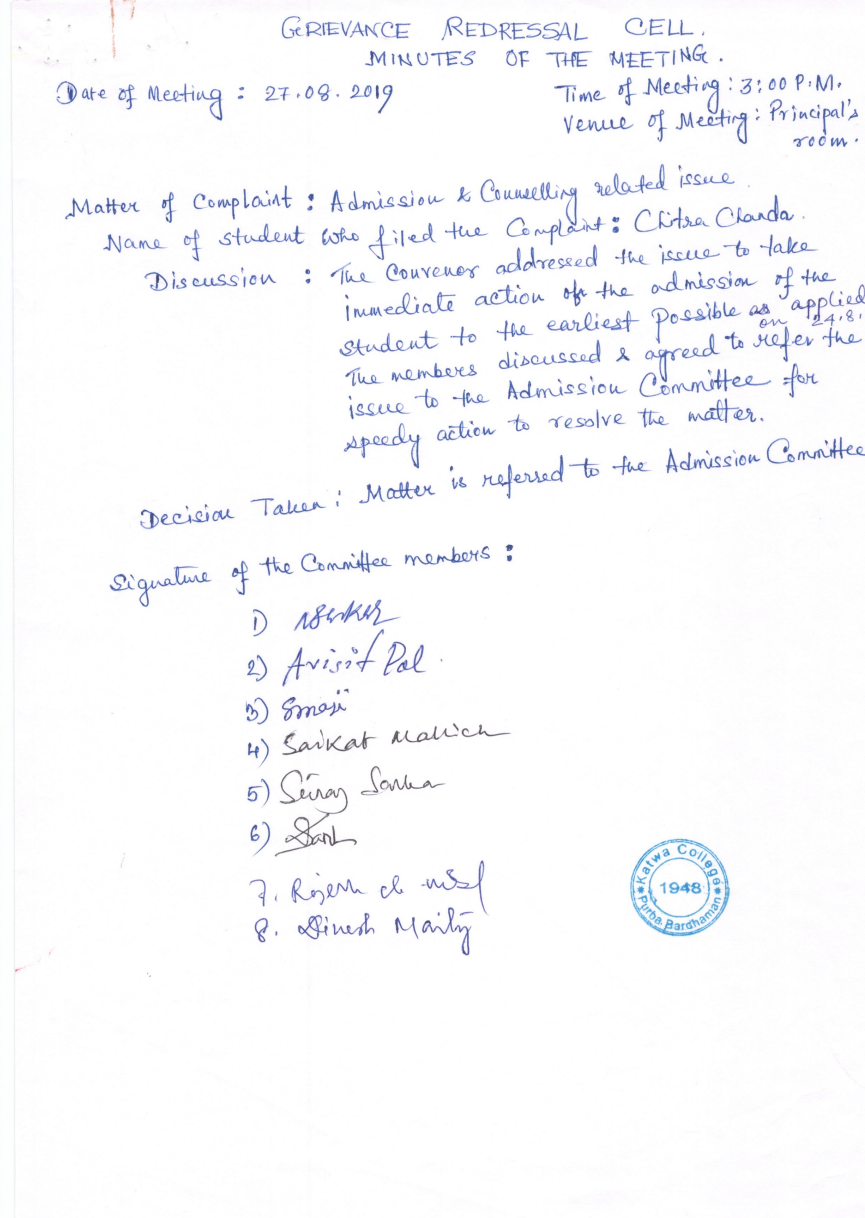 GRIEVANCE REDRESSAL CELL.
MINUTES OF THE MEETING.
Date of Meeting : 27.08.2019
Time of Meeting : 3:00 P.M.
Venue of Meeting : Principal's
room.
Matter of Complaint : Admission & Counselling related issue.
Name of student who filed the Complaint : Chitra Chanda.
Discussion : The Convenor addressed the issue to take
immediate action on the admission of the
student to the earliest possible as applied
on 24.8.
The members discussed & agreed to refer the
issue to the Admission Committee for
speedy action to resolve the matter.
Decision Taken : Matter is referred to the Admission Committee
Signature of the Committee members :
1)
2) Avisit Pal.
3)
4) Saikat Mallick
5)
6)
7. Rajesh
8. Dinesh Maity
Katwa College
1948
Purba Bardhaman